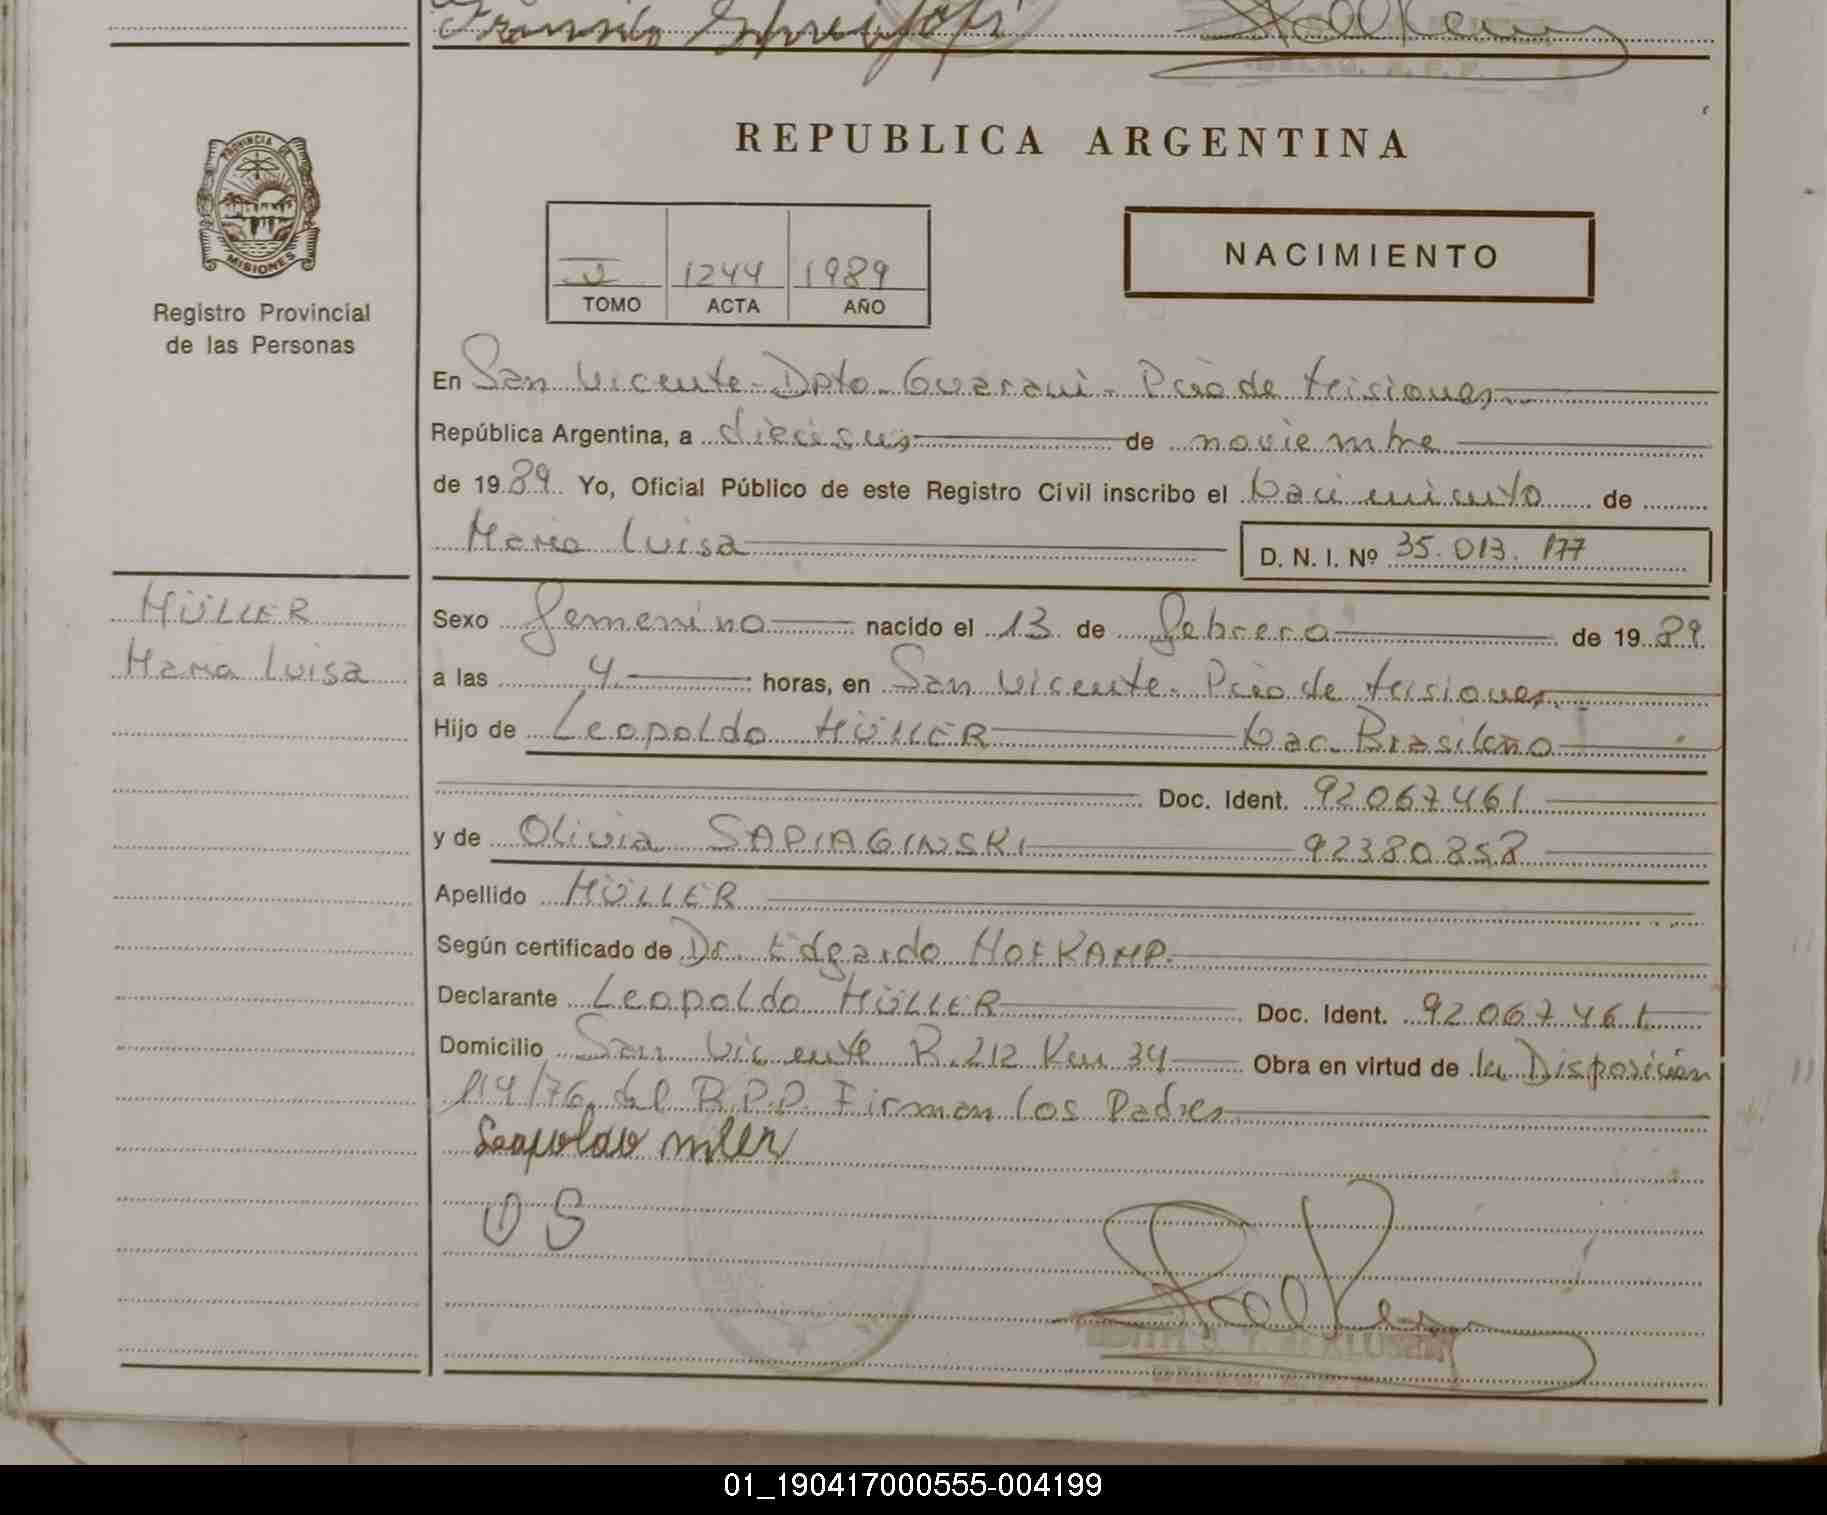 REPUBLICA ARGENTINA
PROVINCIA DE
MISIONES
Registro Provincial
de las Personas
1244 1989
TOMO ACTA AÑO
NACIMIENTO
En San Vicente - Dpto - Guarani - Pcia de Misiones
República Argentina, a dieciseis de noviembre
de 1989 Yo, Oficial Público de este Registro Civil inscribo el Nacimiento de
Maria Luisa D. N. I. Nº 35.013.177
MÜLLER
Maria Luisa
Sexo femenino nacido el 13 de febrero de 1989
a las 4 horas, en San Vicente - Pcia de Misiones
Hijo de Leopoldo MÜLLER Nac. Brasileño
Doc. Ident. 92067461
y de Olivia SAPIAGINSKI 92380858
Apellido MÜLLER
Según certificado de Dr. Edgardo HOFKAMP.
Declarante Leopoldo MÜLLER Doc. Ident. 92067461
Domicilio San Vicente R. 212 Km 34 Obra en virtud de la Disposición
114/76 del R.P.P. Firman los Padres
Leopoldo mller
O S
01_190417000555-004199